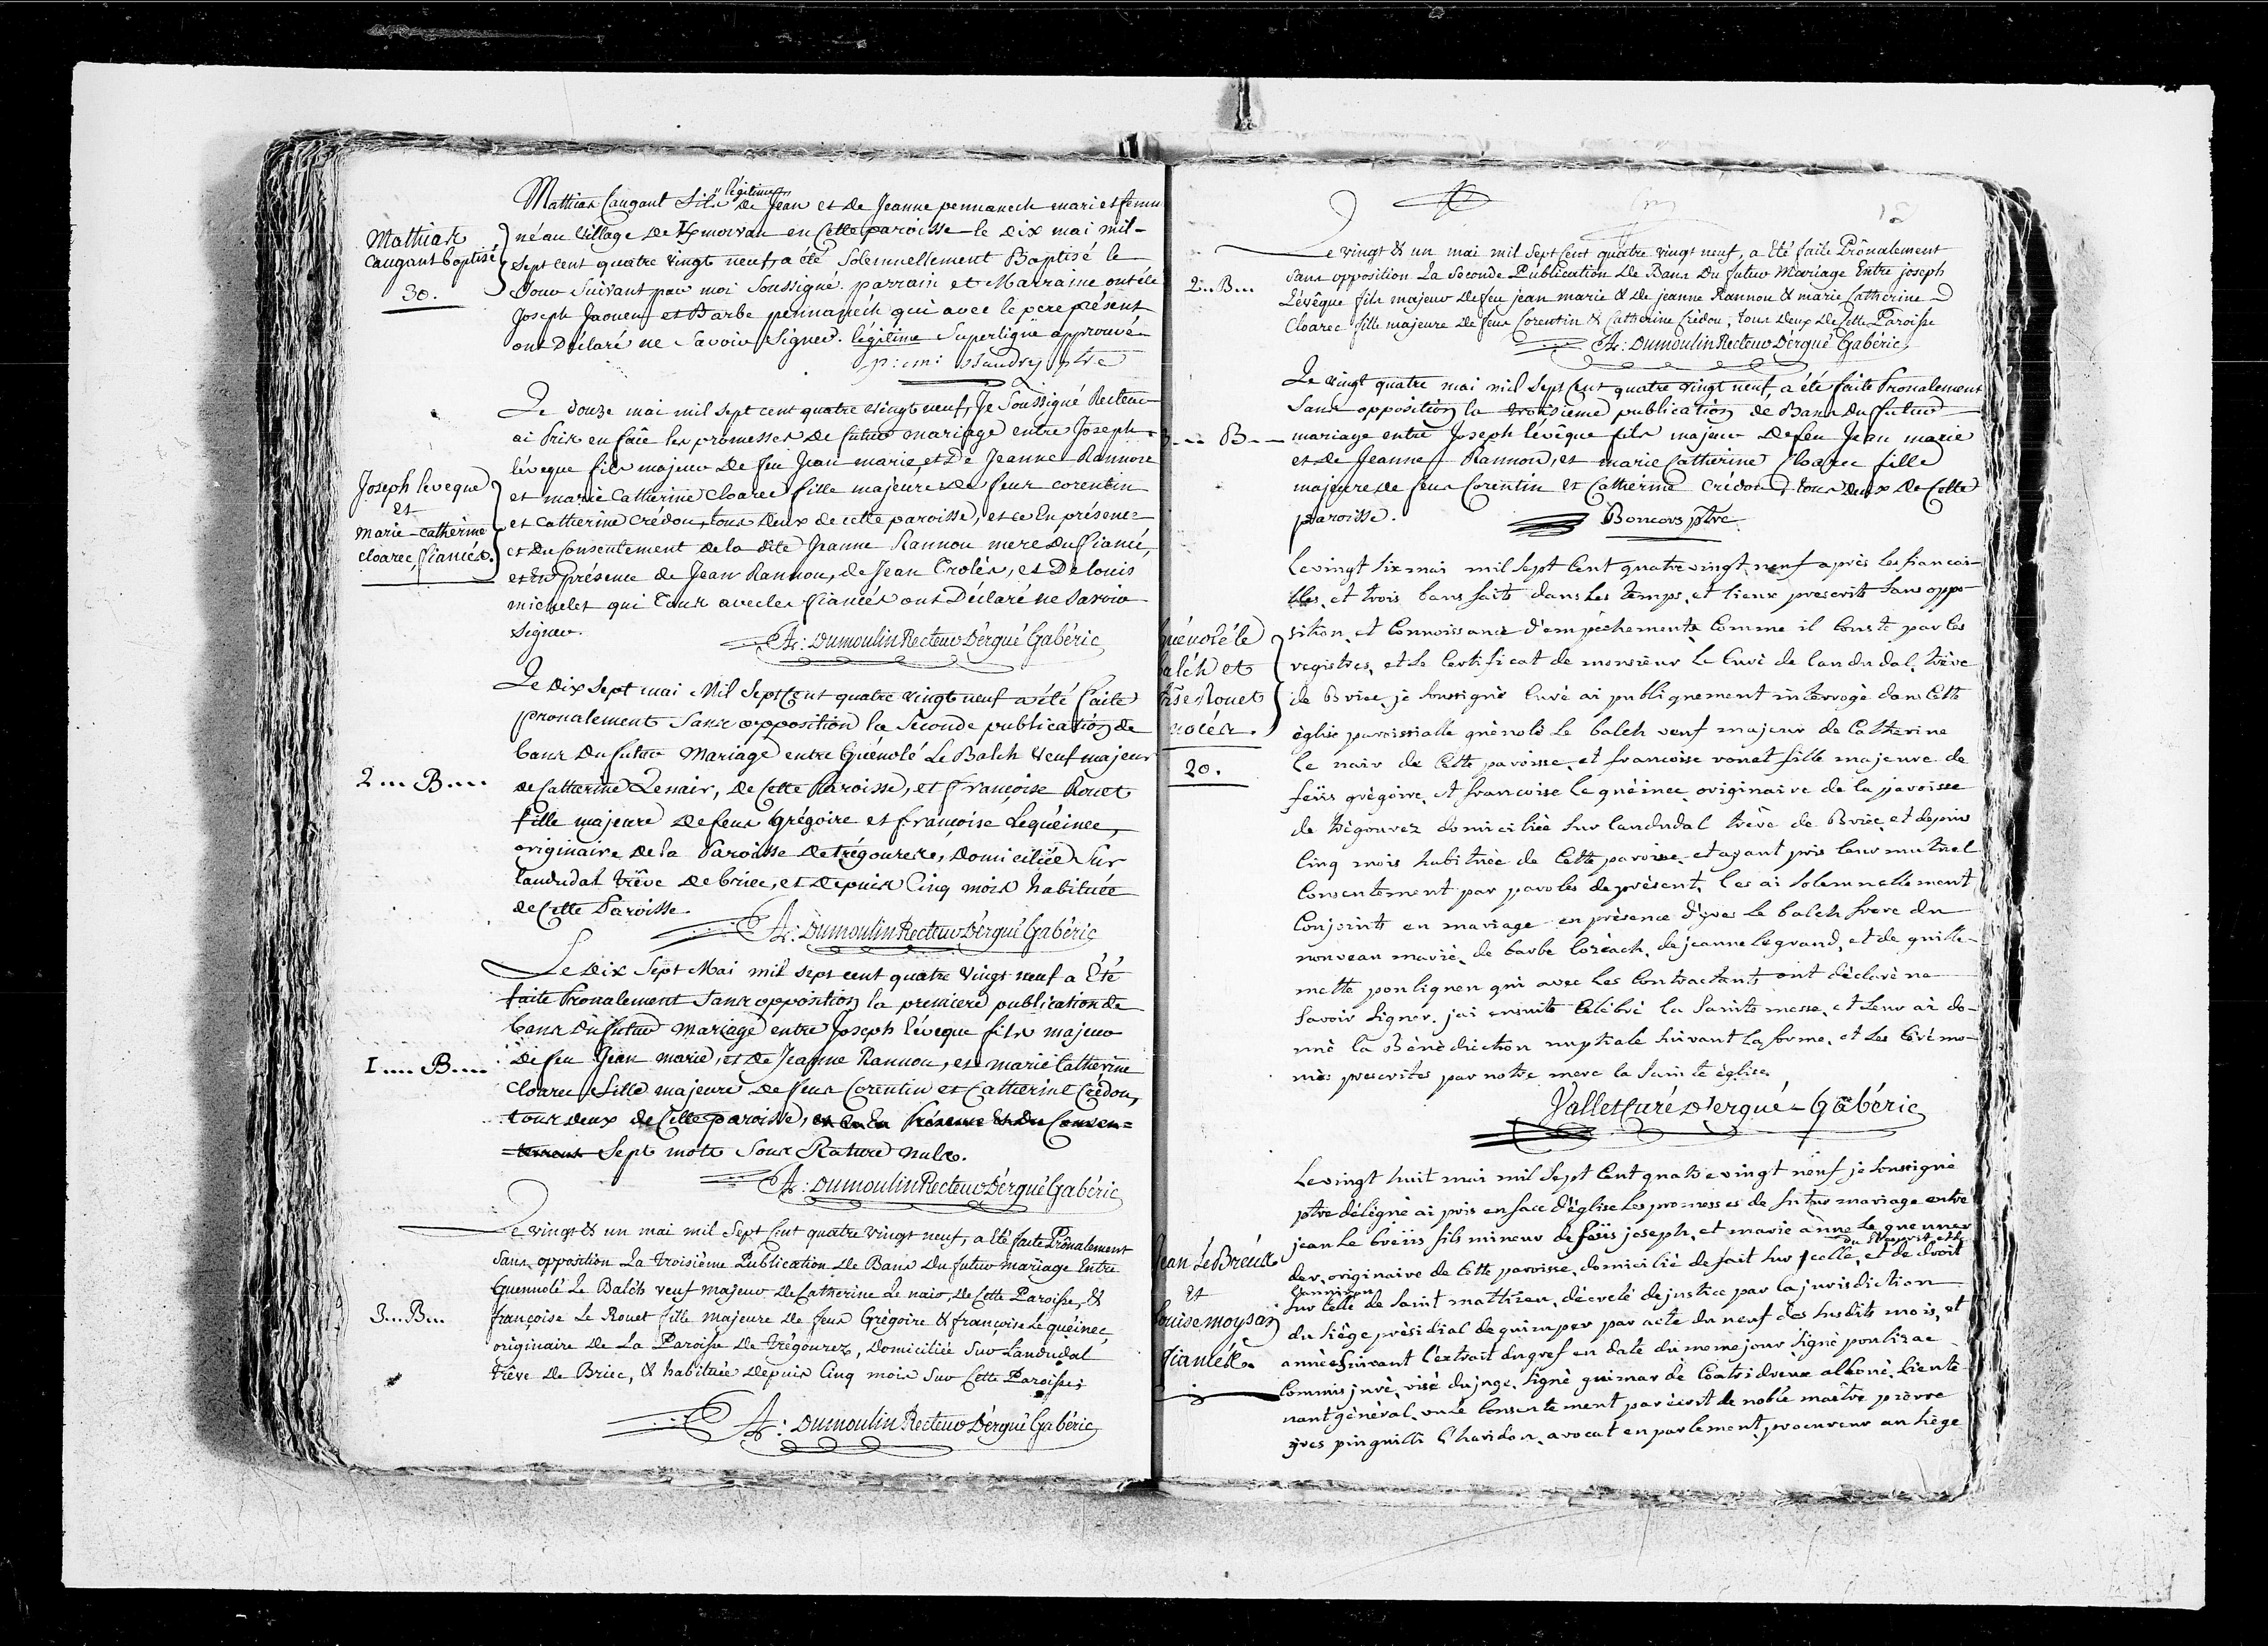 Mathias Caugant baptisé
30.
Mathias Caugant fils légitime de Jean et de Jeanne pennanech mari et femme
né au village de Kmorvan en Cette paroisse le dix mai mil-
sept cent quatre vingt neuf, a été Solemnellement Baptisé le
Jour Suivant par moi Soussigné. parrain et Marraine ont été
Joseph Jaouen et Barbe pennanéch qui avec le pere présent
ont Déclaré ne Savoir Signer. légitime Superligne approuvé
ptre
Joseph leveque
et
Marie-Catherine
cloarec, fiancés.
Le douze mai mil sept cent quatre vingt neuf, Je Soussigné Recteur
ai pris en face les promesses de futur mariage entre Joseph
lévêque fils majeur de feu Jean marie, et de Jeanne Rannou
et marie Catherine cloarec fille majeure de feus corentin
et catherine crédou, tous deux de cette paroisse, et ce En présence
et du Consentement de la dite Jeanne Rannou mere du fiancé,
et en présence de Jean Rannou, de Jean Crolés, et de louis
michelet qui tous avec les fiancés ont Déclaré ne Savoir
Signer.
A: Dumoulin Recteur D'ergué Gabéric
2... B....
Le dix Sept mai Mil Sept Cent quatre vingt neuf a été faite
pronalement Sans opposition la Seconde publication de
bans du futur Mariage entre Guénolé Le Balch Veuf majeur
de Catherine Lenair, de Cette Paroisse, et françoise Rouet
fille majeure de feus Grégoire et françoise Lequéinec,
originaire de la Paroisse de trégourez, Domiciliée Sur
landudal trêve de briec, et depuis Cinq mois habituée
de Cette Paroisse.
A: Dumoulin Recteur D'ergué Gabéric
1.... B....
Le dix Sept Mai mil sept cent quatre vingt neuf a été
faite Pronalement Sans opposition la premiere publication de
bans du futur Mariage entre Joseph lévêque fils majeur
de feu Jean marie, et de Jeanne Rannou, et marie Catherine
Cloarec fille majeure de feus Corentin et Catherine Crédou,
tous deux de Cette paroisse, et ce En Présence et du Consen=
tement Sept mots Sous Rature nuls.
A: Dumoulin Recteur D'ergué Gabéric
3... B...
Le vingt & un mai mil Sept Cent quatre vingt neuf, a été faite Prônalement
Sans opposition La troisième Publication de Bans du futur mariage Entre
Guennolé Le Balch veuf majeur de Catherine Le nair, de Cette Paroisse, &
françoise Le Rouet fille majeure de feus Grégoire & françoise Le quéinec,
originaire de La Paroisse de trégourez, Domiciliée Sur Landudal
trêve de Briec, & habituée depuis Cinq mois Sur Cette Paroisse;
A: Dumoulin Recteur D'ergué Gabéric
2... B...
Le vingt & un mai mil Sept Cent quatre vingt neuf, a été faite Prônalement
Sans opposition La Seconde Publication de Bans du futur Mariage Entre joseph
Lévêque fils majeur de feu jean marie & de jeanne Rannou & marie Catherine
Cloarec fille majeure de feus Corentin & Catherine Crédou, tous deux de Cette Paroisse
A: Dumoulin Recteur D'ergué Gabéric
3... B...
Le vingt quatre mai mil Sept Cent quatre vingt neuf, a été faite Pronalement
Sans opposition la troisième publication de Bans du futur
mariage entre Joseph lévêque fils majeur de feu Jean marie
et de Jeanne Rannou, et marie Catherine Cloarec fille
majeure de feus Corentin et Catherine Crédou, tous deux de Cette
paroisse.
Boncors ptre
guénolé le
balch et
frse Rouet
nocés.
20.
Le vingt Six mai mil Sept Cent quatre vingt neuf après les fiancai-
lles, et trois bans faits dans les temps, et lieux prescrits Sans oppo-
sition, et Connoissance d'empêchements Comme il Conste par les
registres, et le Certificat de monsieur Le Curé de landudal, trêve
de Briec, je Soussigné Curé ai publiquement interrogé dans Cette
église paroissialle guénolé Le balch veuf majeur de Catherine
le nair de Cette paroisse, et francoise rouet fille majeure de
feüs grégoire, et francoise le quéinec originaire de la paroisse
de trégourez domiciliée Sur landudal trêve de Briec, et depuis
Cinq mois habituée de Cette paroisse et ayant pris leur mutuel
Consentement par paroles de présent, les ai Solemnellement
Conjoints en mariage en présence d'yves Le balch frere du
nouveau marié, de barbe lozéach, de jeanne le grand, et de guille-
mette pouliquen qui avec les Contractants ont déclaré ne
Savoir Signer. j'ai ensuite Célébré la Sainte messe, et leur ai do-
nné la Bénédiction nuptiale Suivant la forme, et les Cérémo-
nies prescrites par notre mere la Sainte église.
Vallet Curé d'ergué-Gabéric
Jean Le Breüs
et
Louise moysan
fiancés.
Le vingt huit mai mil Sept Cent quatre vingt neuf je Soussigné
ptre délégué ai pris en face d'église les promesses de futur mariage entre
jean Le breüs fils mineur de feüs joseph, et marie anne Le quenner
der, originaire de Cette paroisse, domicilié de fait Sur icelle, et de droit
Sur Celle de Saint mathieu, décreté de justice par la jurisdiction
du Siège présidial de quimper par acte du neuf des Susdits mois, et
année Suivant l'extrait du gref en date du meme jour Signé poulizac
Commis juré, visé du juge, Signé guimar de Coatridreux alloué, lieute-
nant général, vu le Consentement par écrit de noble maître pierre
yves pinguilli l'haridon, avocat en parlement, procureur au Siège